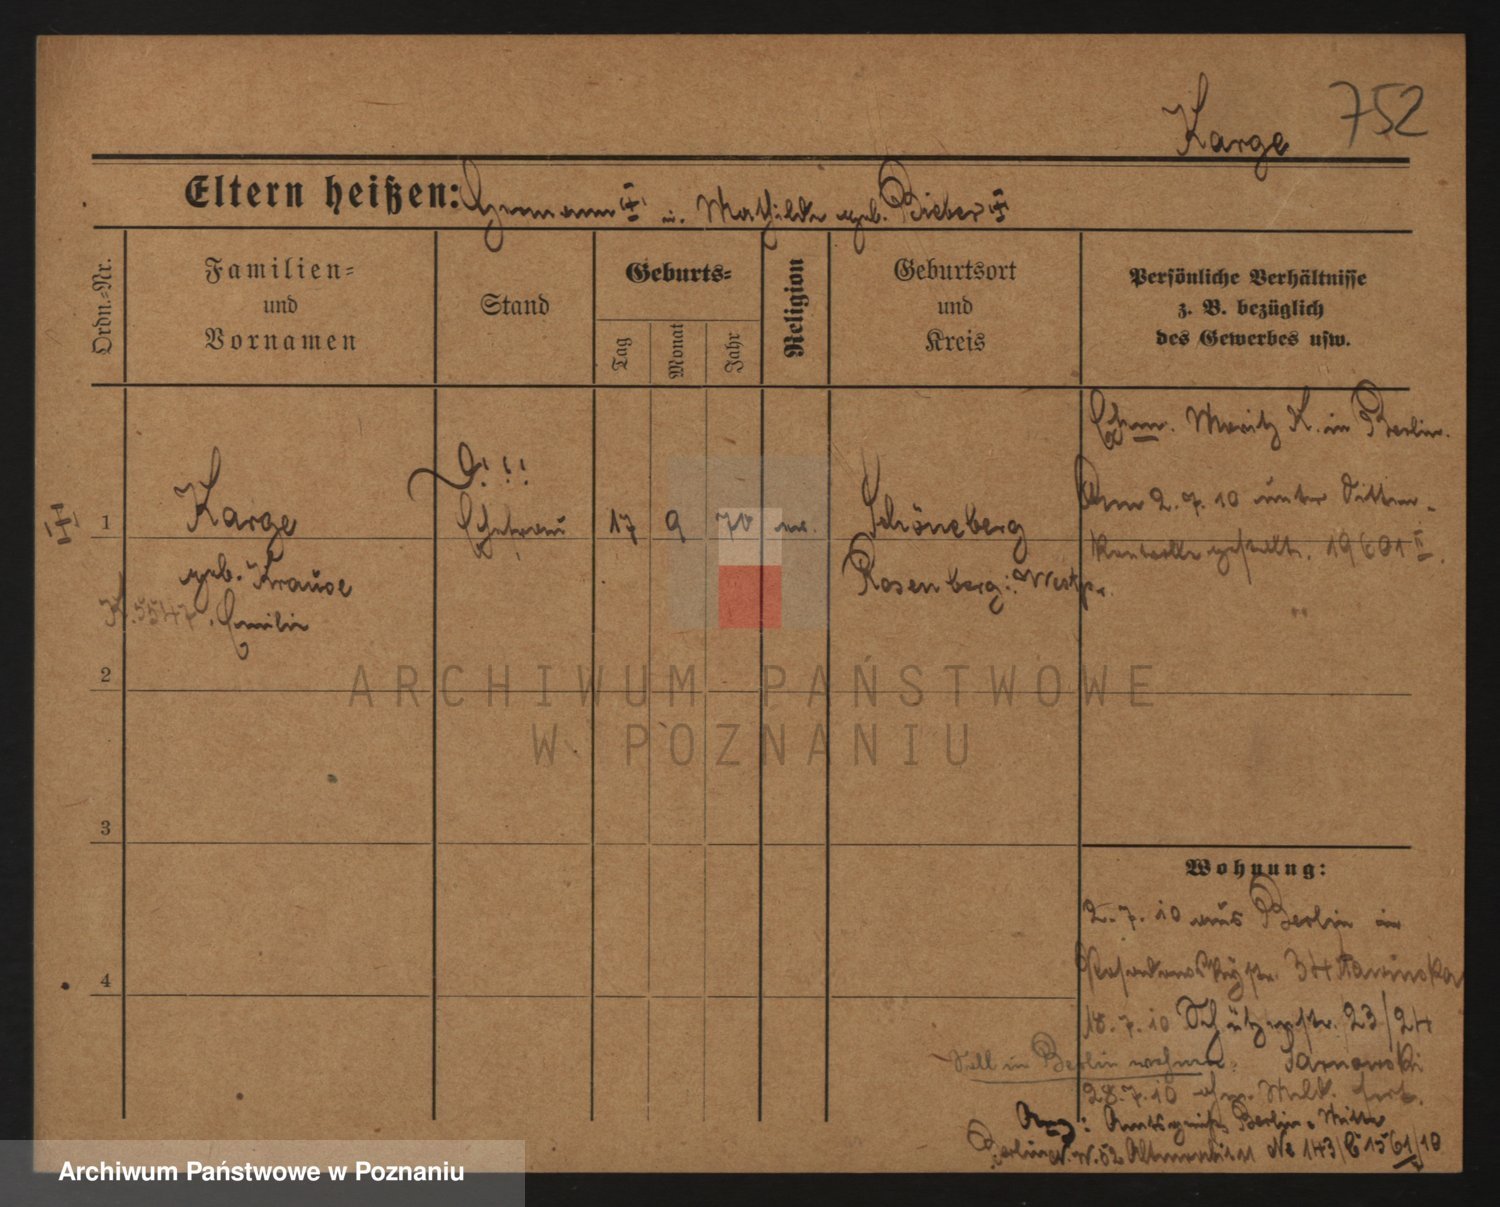 Karge 752
Eltern heißen: Hermann u. Mathilde geb. Bieber
Ordn.-Nr.
Familien-
und
Vornamen
Stand
Geburts-
Tag
Monat
Jahr
Religion
Geburtsort
und
Kreis
Persönliche Verhältnisse
z. B. bezüglich
des Gewerbes usw.
Ehem. Moritz K. in Berlin.
1 Karge
geb. Krause
Emilie
Ehefrau 17 9 70 ev. Schöneberg
Rosenberg: Westpr.
Am 2.7.10 unter Sitten-
kontrolle gestellt. 19601 II.
2
3
4
Wohnung:
2.7.10 aus Berlin in
34
18.7.10 Schützenstr. 23/24
Soll in Berlin wohnen. Tarnowski
28.7.10
Berlin-Mitte
Berlin N.W. 52 143 /10
ARCHIWUM PAŃSTWOWE
W POZNANIU
Archiwum Państwowe w Poznaniu